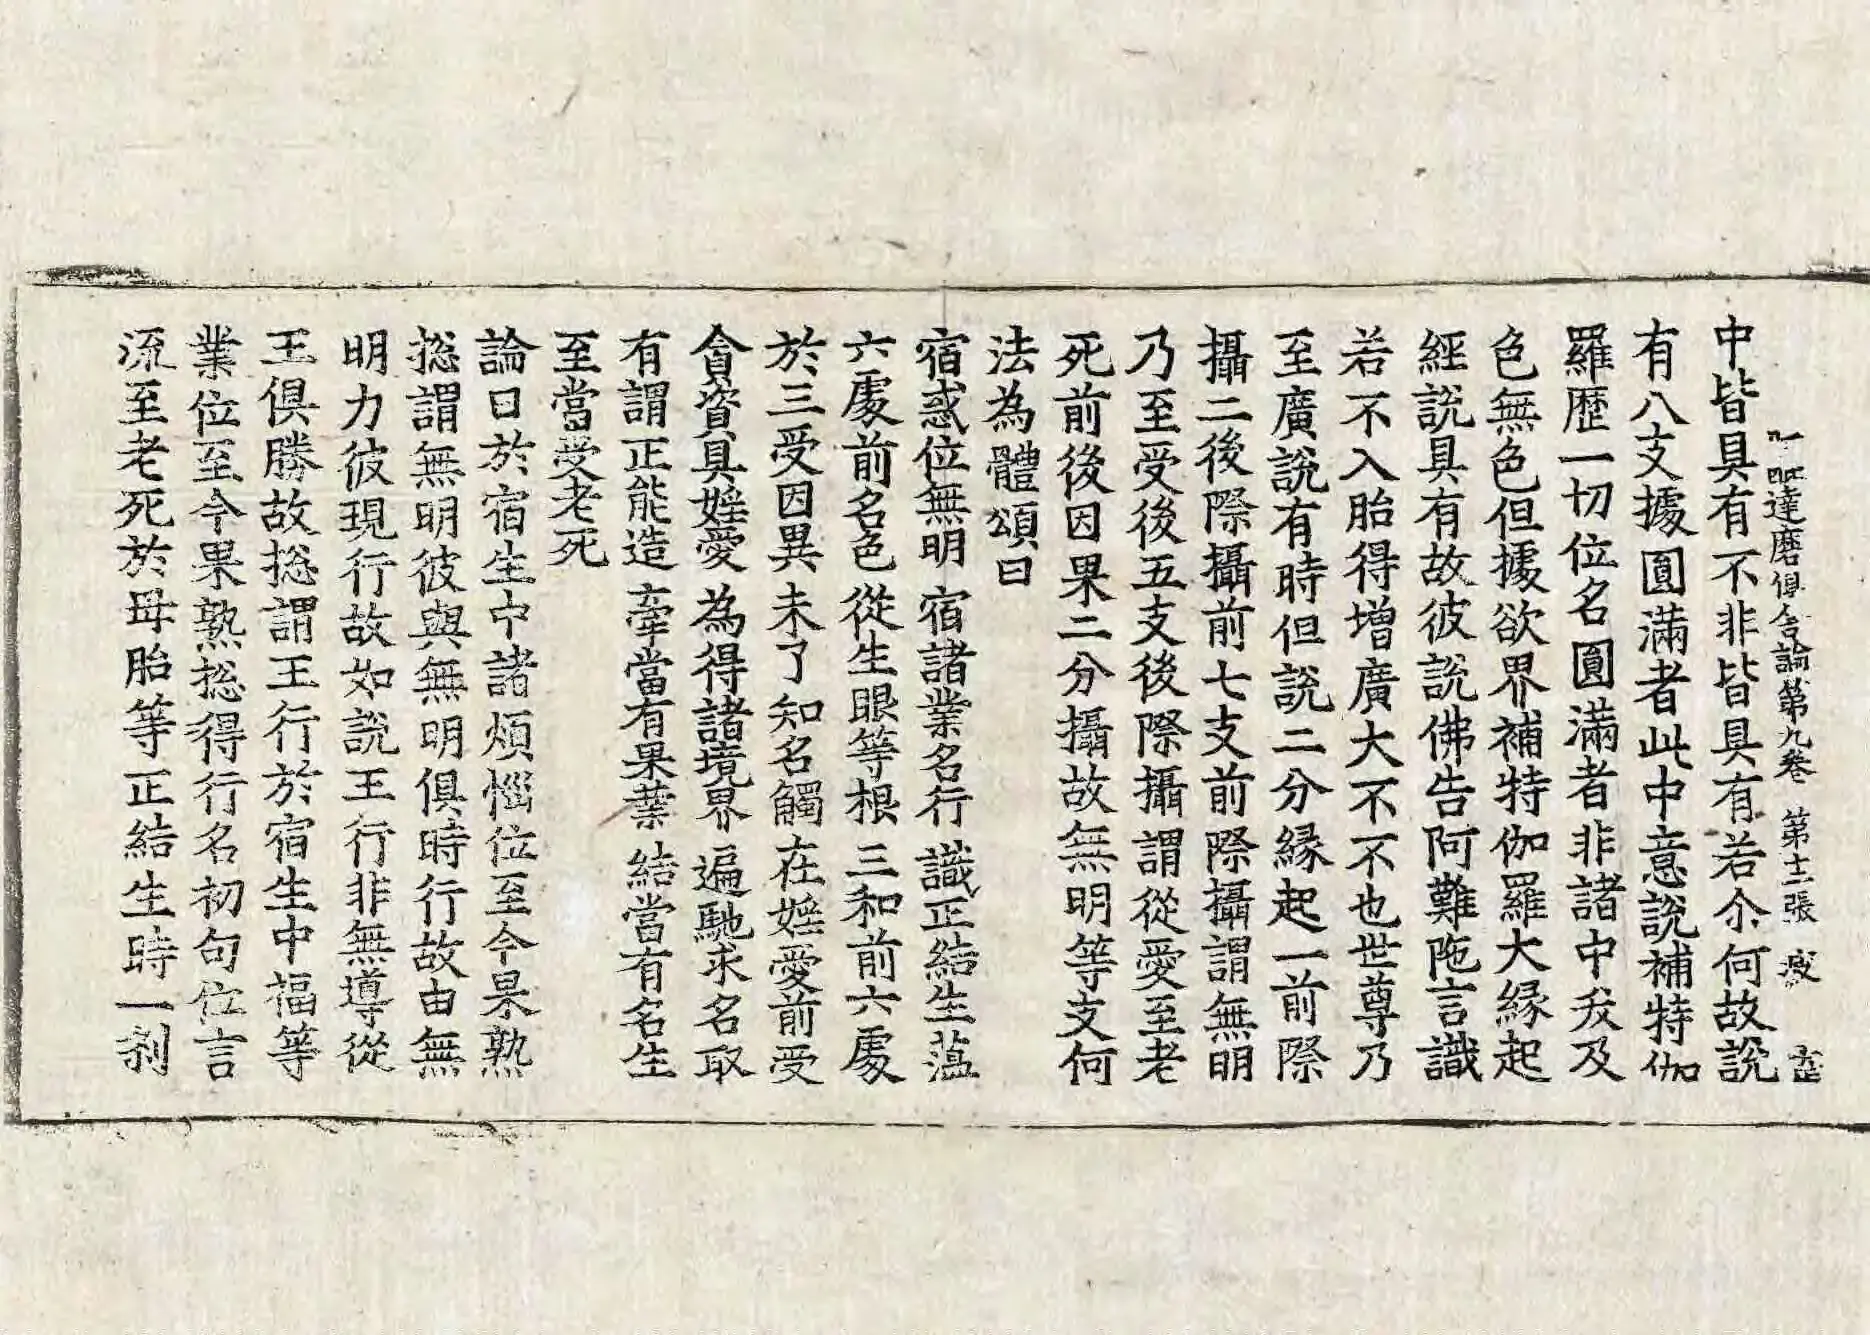 達磨俱舍論第九卷 第十二張 疲
中皆具有不非皆具有若尒何故説
有八支據圓滿者此中意説補特伽
羅歷一切位名圓滿者非諸中夭及
色無色但據欲界補特伽羅大縁起
經説具有故彼説佛告阿難陁言識
若不入胎得增廣大不不也世尊乃
至廣説有時但説二分縁起一前際
攝二後際攝前七支前際攝謂無明
乃至受後五支後際攝謂從愛至老
死前後因果二分攝故無明等支何
法為體頌曰
宿惑位無明 宿諸業名行 識正結生蘊
六處前名色 從生眼等根 三和前六處
於三受因異 未了知名觸 在婬愛前受
貪資具婬愛 為得諸境界 遍馳求名取
有謂正能造 牽當有果業 結當有名生
至當受老死
論曰於宿生中諸煩惱位至今果熟
揔謂無明彼與無明俱時行故由無
明力彼現行故如説王行非無導從
王俱勝故揔謂王行於宿生中福等
業位至今果熟揔得行名初句位言
流至老死於母胎等正結生時一刹